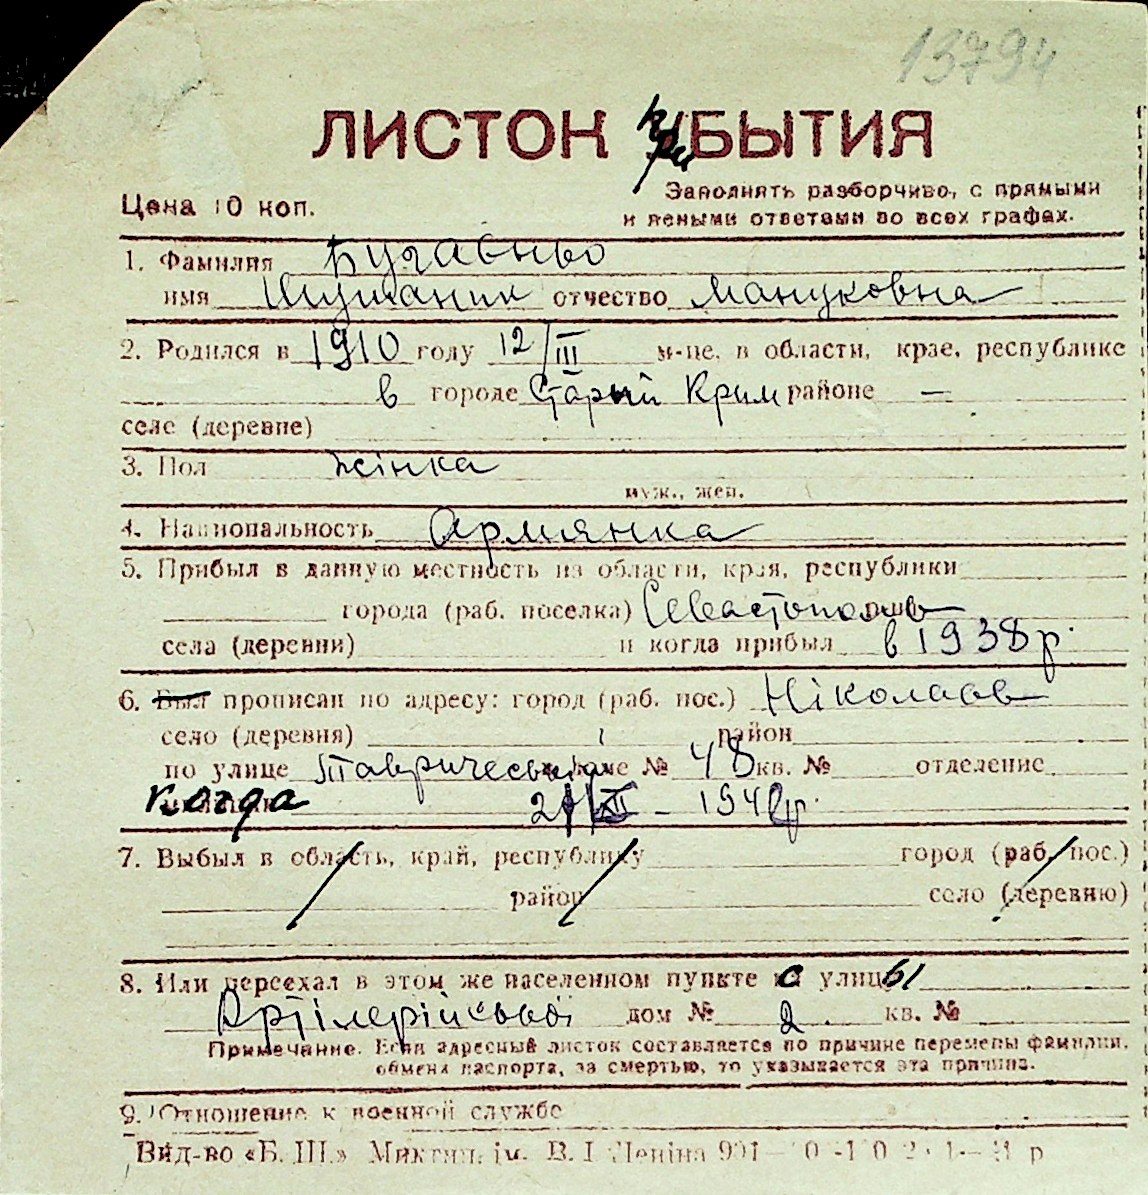 13794
ЛИСТОК прибЫТИЯ
Цена 10 коп.
Заполнять разборчиво, с прямыми
и ясными ответами во всех графах.
1. Фамилия
имя Шушаник отчество Мануковна
2. Родился в 1910 году 12/III м-це, в области, крае, республике
в городе Старый Крим районе —
селе (деревне)
3. Пол жінка
муж., жен.
4. Национальность Армянка
5. Прибыл в данную местность из области, края, республики
города (раб. поселка) Севастополь
села (деревни) и когда прибыл в 1938 р.
6. Был прописан по адресу: город (раб. пос.) Ніколаєв
село (деревня) район
по улице Таврическая доме № 48 кв. № отделение
когда
7. Выбыл в область, край, республику город (раб. пос.)
район село (деревню)
8. Или переехал в этом же населенном пункте с улицы
Артілерійської дом № 2. кв. №
Примечание. Если адресный листок составляется по причине перемены фамилии,
обмена паспорта, за смертью, то указывается эта причина.
9. Отношение к военной службе
Вид-во «Б. Ш.» ім. В. І Леніна